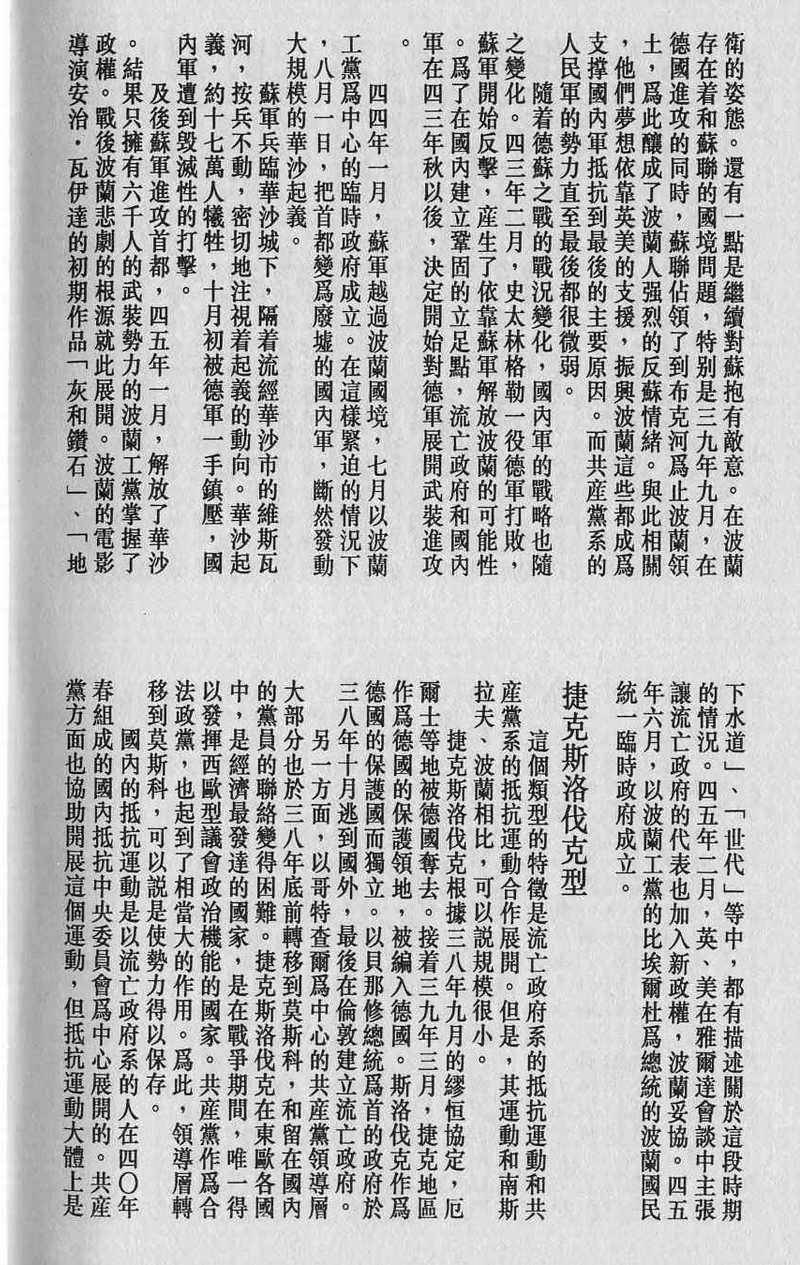 衛的姿態。還有一點是繼續對蘇抱有敵意。在波蘭
存在着和蘇聯的國境問題，特別是三九年九月，在
德國進攻的同時，蘇聯佔領了到布克河爲止波蘭領
土，爲此釀成了波蘭人强烈的反蘇情緒。與此相關
，他們夢想依靠英美的支援，振興波蘭這些都成爲
支撑國內軍抵抗到最後的主要原因。而共産黨系的
人民軍的勢力直至最後都很微弱。
隨着德蘇之戰的戰況變化，國內軍的戰略也隨
之變化。四三年二月，史太林格勒一役德軍打敗，
蘇軍開始反擊，産生了依靠蘇軍解放波蘭的可能性
。爲了在國內建立鞏固的立足點，流亡政府和國內
軍在四三年秋以後，決定開始對德軍展開武裝進攻
。
四四年一月，蘇軍越過波蘭國境，七月以波蘭
工黨爲中心的臨時政府成立。在這樣緊迫的情況下
，八月一日，把首都變爲廢墟的國內軍，斷然發動
大規模的華沙起義。
蘇軍兵臨華沙城下，隔着流經華沙市的維斯瓦
河，按兵不動，密切地注視着起義的動向。華沙起
義，約十七萬人犧牲，十月初被德軍一手鎮壓，國
內軍遭到毀滅性的打擊。
及後蘇軍進攻首都，四五年一月，解放了華沙
。結果只擁有六千人的武裝勢力的波蘭工黨掌握了
政權。戰後波蘭悲劇的根源就此展開。波蘭的電影
導演安治·瓦伊達的初期作品「灰和鑽石」、「地
下水道」、「世代」等中，都有描述關於這段時期
的情況。四五年二月，英、美在雅爾達會談中主張
讓流亡政府的代表也加入新政權，波蘭妥協。四五
年六月，以波蘭工黨的比埃爾杜爲總統的波蘭國民
統一臨時政府成立。
捷克斯洛伐克型
這個類型的特徵是流亡政府系的抵抗運動和共
産黨系的抵抗運動合作展開。但是，其運動和南斯
拉夫、波蘭相比，可以説規模很小。
捷克斯洛伐克根據三八年九月的繆恒協定，厄
爾士等地被德國奪去。接着三九年三月，捷克地區
作爲德國的保護領地，被編入德國。斯洛伐克作爲
德國的保護國而獨立。以貝那修總統爲首的政府於
三八年十月逃到國外，最後在倫敦建立流亡政府。
另一方面，以哥特查爾爲中心的共産黨領導層
大部分也於三八年底前轉移到莫斯科，和留在國內
的黨員的聯絡變得困難。捷克斯洛伐克在東歐各國
中，是經濟最發達的國家，是在戰爭期間，唯一得
以發揮西歐型議會政治機能的國家。共産黨作爲合
法政黨，也起到了相當大的作用。爲此，領導層轉
移到莫斯科，可以説是使勢力得以保存。
國內的抵抗運動是以流亡政府系的人在四〇年
春組成的國內抵抗中央委員會爲中心展開的。共産
黨方面也協助開展這個運動，但抵抗運動大體上是